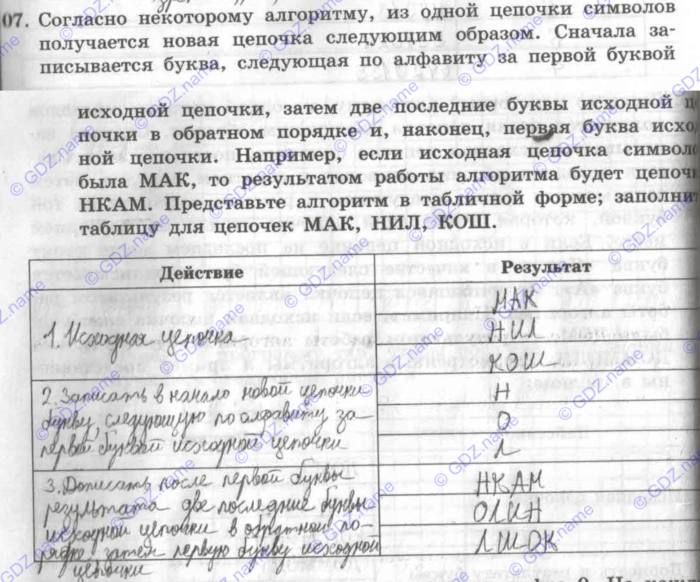 07. Согласно некоторому алгоритму, из одной цепочки символов
получается новая цепочка следующим образом. Сначала за-
писывается буква, следующая по алфавиту за первой буквой
исходной цепочки, затем две последние буквы исходной ц
почки в обратном порядке и, наконец, первая буква исхо
ной цепочки. Например, если исходная цепочка символ
была МАК, то результатом работы алгоритма будет цепоч
НКАМ. Представьте алгоритм в табличной форме; заполни
таблицу для цепочек МАК, НИЛ, КОШ.
Действие Результат
1. Исходная цепочка
МАК
НИЛ
КОШ
2. Записать в начало новой цепочки
букву, следующую по алфавиту за
первой буквой исходной цепочки
Н
О
Л
3. Дописать после первой буквы
результата две последние буквы
исходной цепочки в обратном по-
рядке затем первую букву исходной
цепочки
НКАМ
ОЛИН
ЛШОК
© GDZ.name